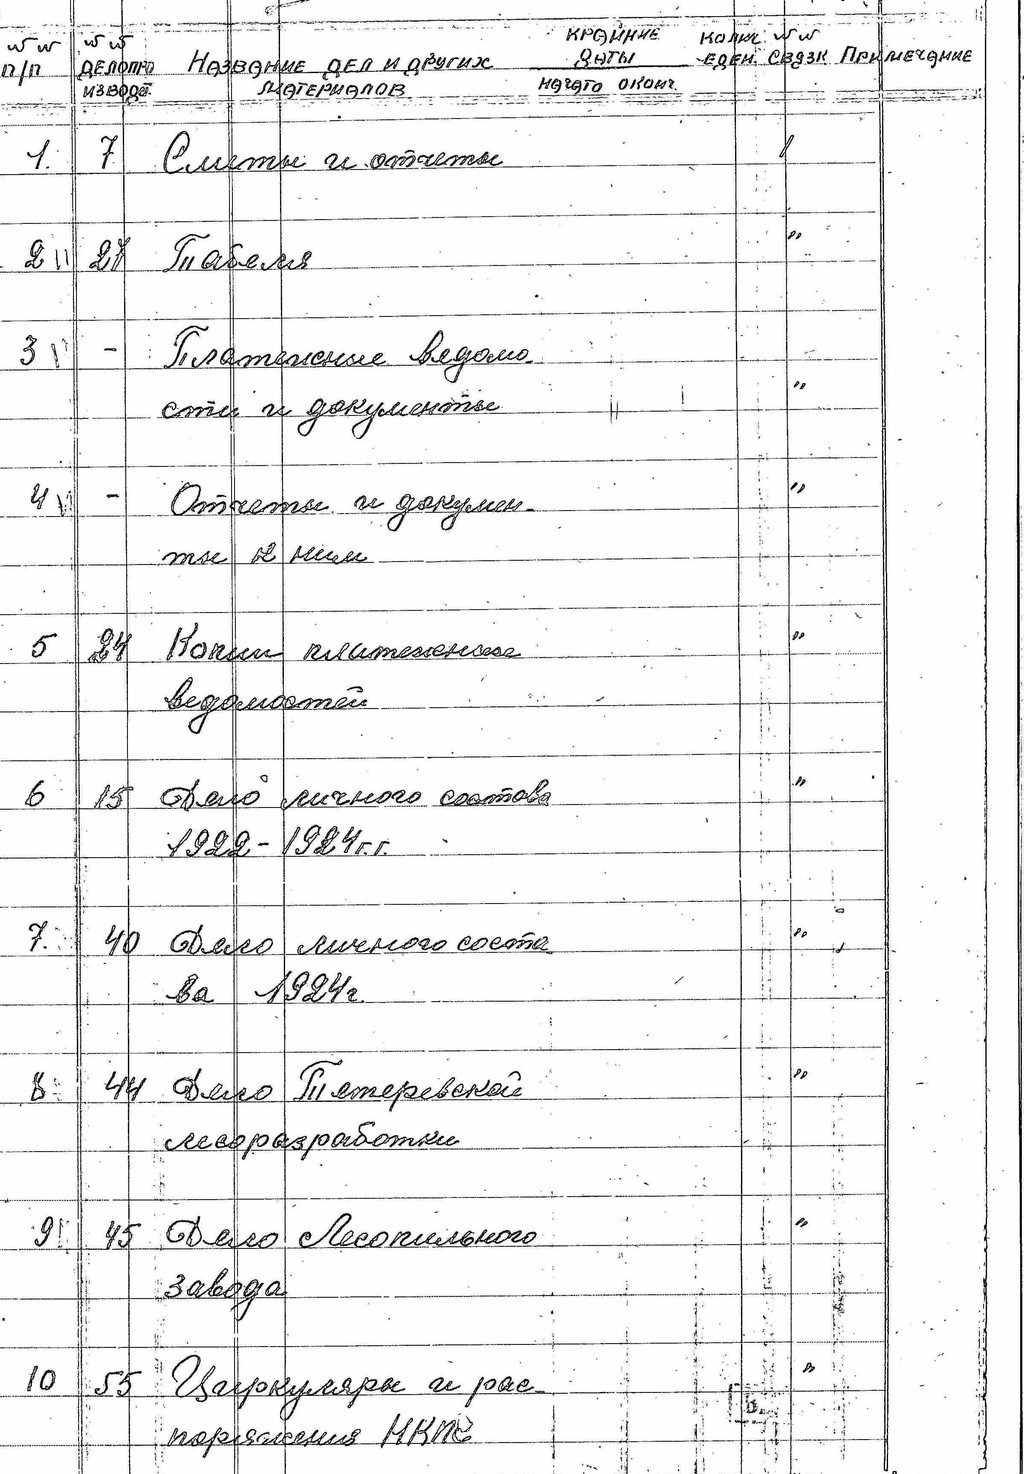 №№ п/п №№ делопроизводст. Название дел и других материалов Крайние даты начато оконч. Колич. един. №№ связк Примечание
1. 7 Сметы и отчеты 1
2 27 Табеля "
3 - Платежные ведомо-
сти и документы "
4 - Отчеты и докумен- "
ты к ним
5 24 Копии платежных "
ведомостей
6 15 Дело личного состава "
1922-1924г.г.
7. 40 Дело личного соста "
ва 1924г.
8 44 Дело Тетеревской "
лесоразработки
9 45 Дело Лесопильного "
завода
10 55 Циркуляры и рас- "
поряжения НКПС